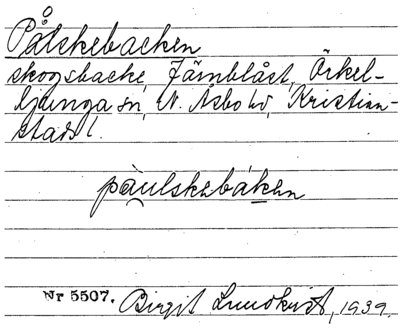 Pålskebacken
skogsbacke, Järnblåst, Örkel-
ljunga sn, N. Åsbo hd, Kristian-
stads l.
pàulskebáken
Nr 5507. Birgit Lundkvist, 1939.